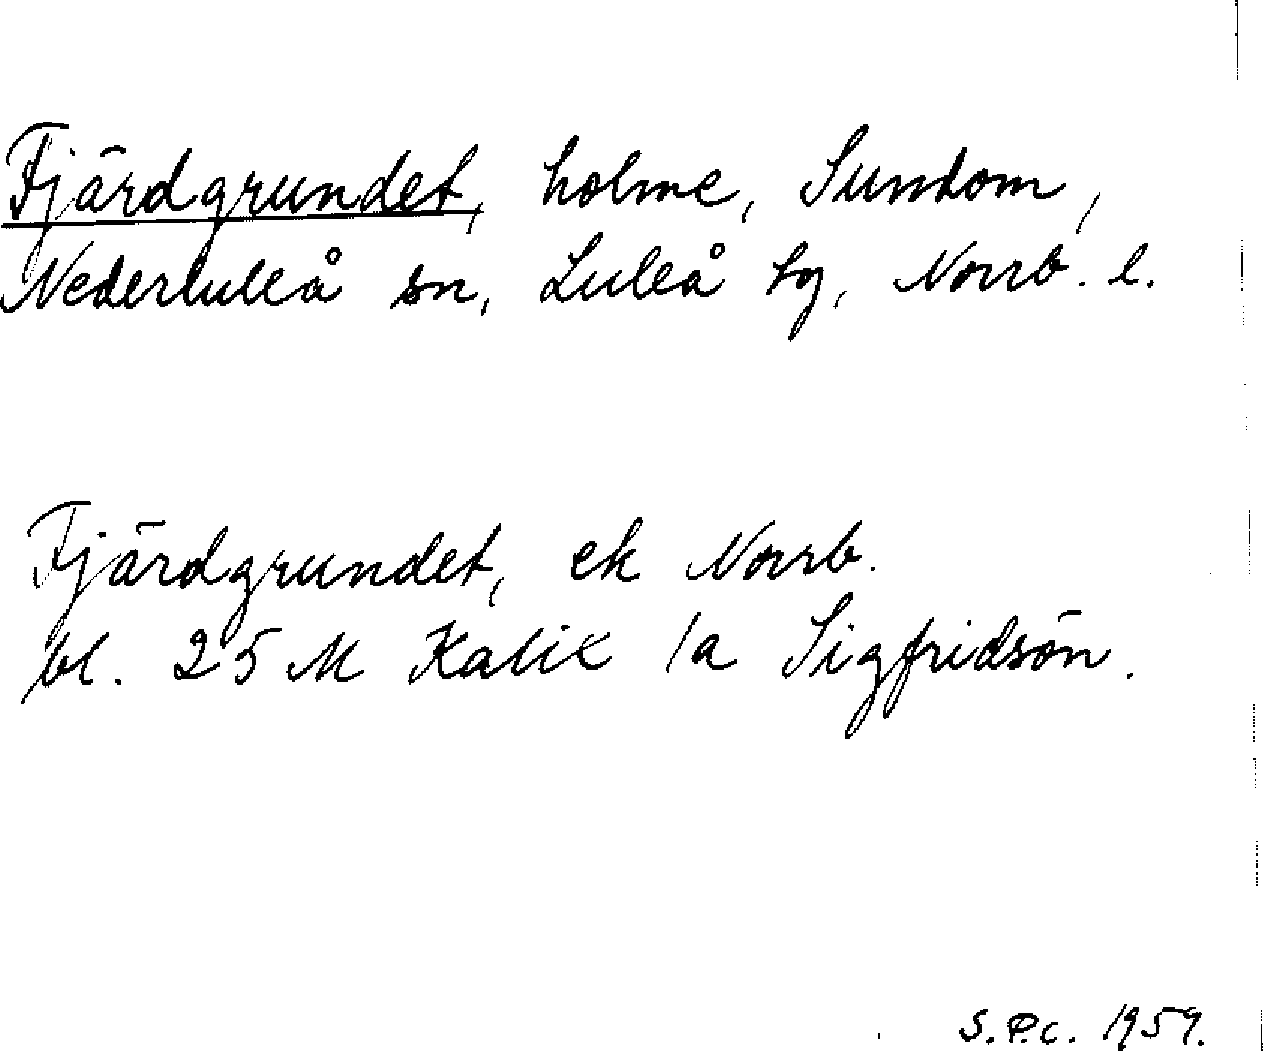 Fjärdgrundet, holme, Sundom,
Nederluleå sn, Luleå tg, Norrb. l.
Fjärdgrundet, ek Norrb.
bl. 25 M Kalix /a Sigfridsön.
S.P.C. 1959.